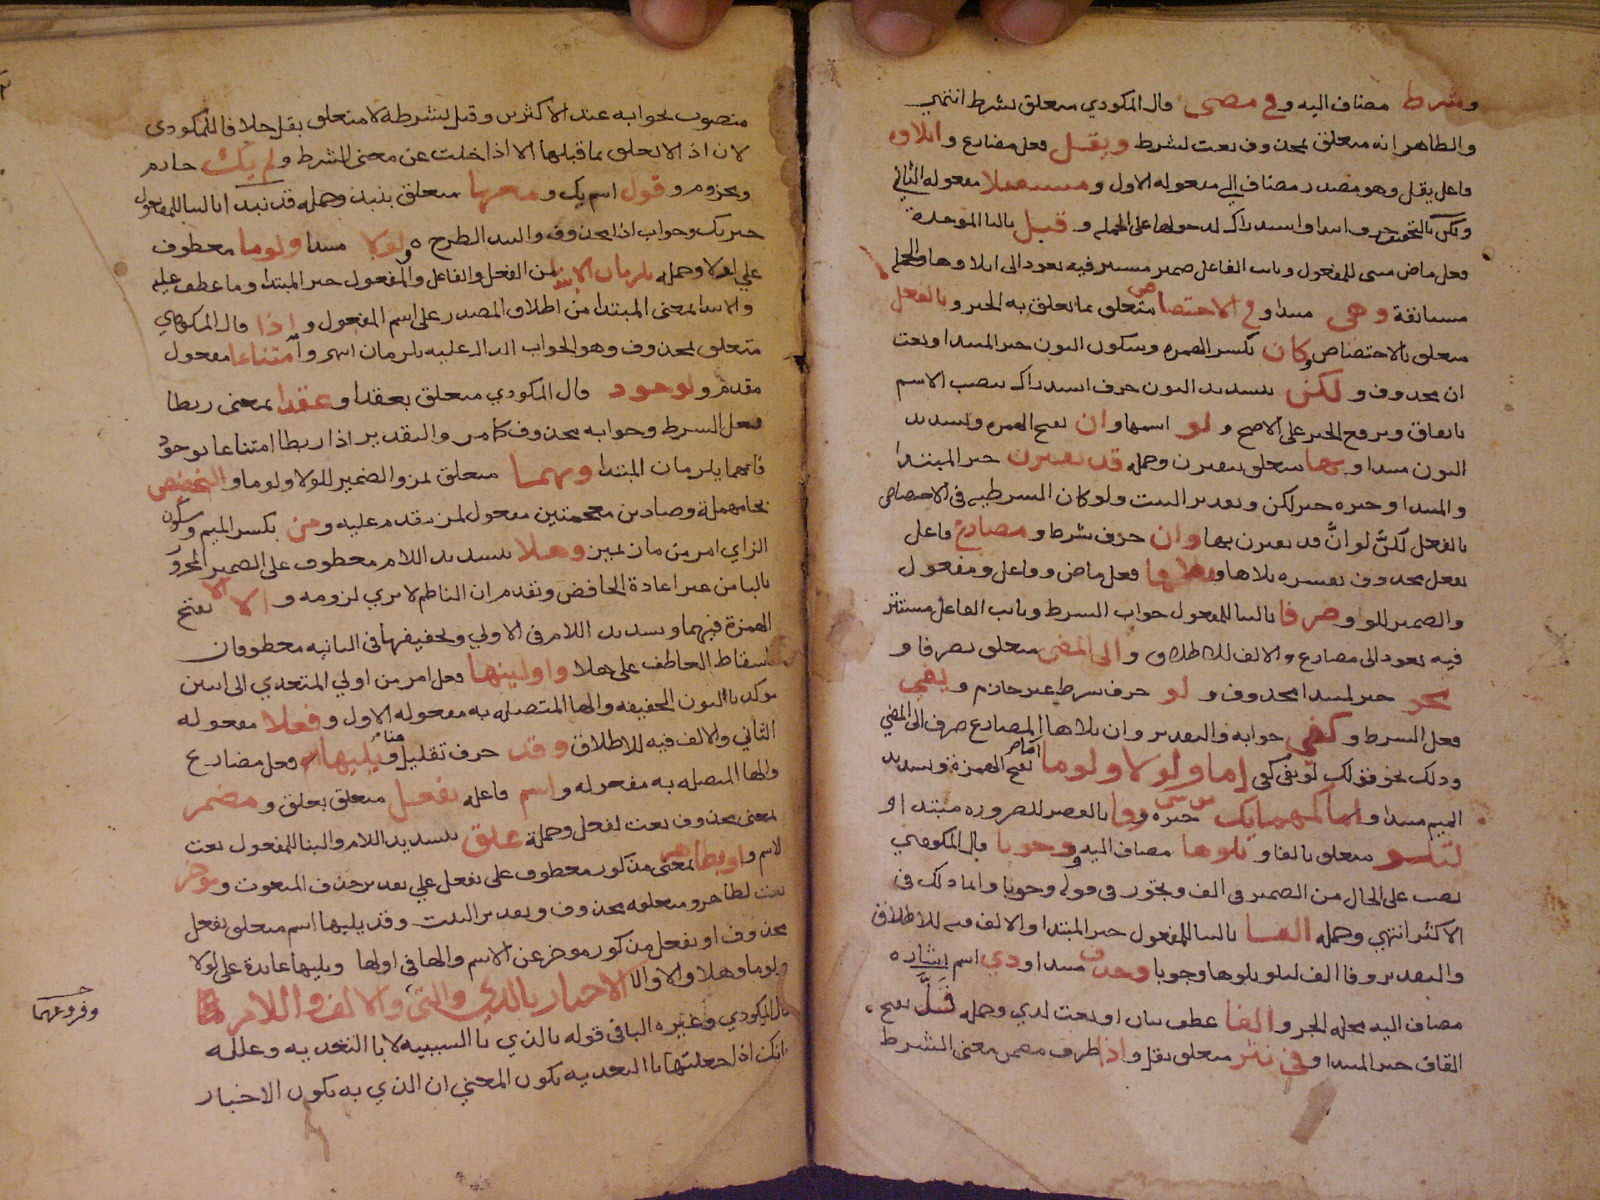 وشرط مضاف اليه وفي مضي قال المكودي متعلق بشرط انتهي
والظاهر انه متعلق بمحذوف نعت لشرط ويقل فعل مضارع وايلاوه
فاعل يقل وهو مصدر مضاف الي مفعوله الاول ومستقبلا مفعوله الثاني
ولكن بالتخفيف حرف ابتدا واستدراك لدخولها على الجملة وقبل بالبا الموحدة
فعل ماض مبني للمفعول ونايب الفاعل ضمير مستتر فيه يعود الى ايلاوها والجملة
مستانفة وهي مبتدا وفي الاختصاص متعلق بما تعلق به الخبر وبالفعل
متعلق بالاختصاص وكان بكسر الهمزة وسكون النون خبر المبتدا ونعت
ان محذوف ولكن بتشديد النون حرف استدراك ينصب الاسم
باتفاق ويرفع الخبر على الاصح ولو اسمها وان بفتح الهمزة وتشديد
النون مبتدا وبها متعلق بتقترن وجملة قد تقترن خبر المبتدا
والمبتدا وخبره خبر لكن وتقدير البيت ولو كان الشرطية في الاختصاص
بالفعل لكنّ لو انَّ قد تقترن بها وان حرف شرط ومضارع فاعل
بفعل محذوف يفسره تلاها وتلاها فعل ماض وفاعل ومفعول
والضمير للو وصرفا بالبنا للمفعول جواب الشرط ونايب الفاعل مستتر
فيه يعود الى مضارع والالف للاطلاق والى المضي متعلق بصرفا و
نحو خبر لمبتدا محذوف ولو حرف شرط غير جازم ويفي
فعل الشرط وكفي جوابه والتقدير وان تلاها المضارع صرف الى المضي
وذلك نحو قولك لو يفي كفي اما ولولا ولوما اما بفتح الهمزة وتشديد
الميم مبتدا واما كمهما يك من شي خبره وفا بالقصر للضرورة مبتدا و
لتلو متعلق بالفا وتلوها مضاف اليه ووجوبا قال المكودي
نصب على الحال من الضمير في الف ويجوز في قوله وجوبا واما ذلك في
الاكثر انتهي وجملة الفا بالبنا للمفعول خبر المبتدا والالف فيه للاطلاق
والتقدير وفا الف لتلو تلوها وجوبا وحذف مبتدا وذي اسم اشارة
مضاف اليه محله الجر والفا عطف بيان او نعت لذي وجملة قَلَّ بفتح
القاف خبر المبتدا وفي نثر متعلق بقل واذا ظرف مضمر معنى الشرط
منصوب بجوابه عند الاكثرين وقيل بشرطه لا متعلق بقل خلافا للمكودي
لان اذا لا تعلق بما قبلها الا اذا خلت عن معنى الشرط ولم يك جازم
ومجزوم وقول اسم يك ومعها متعلق بنبذ وجملة قد نبذ ابالبنا للمفعول
خبر يك وجواب اذا محذوف والنبذ الطرح ولولا مبتدا ولوما معطوف
على لولا وجملة يلزمان الابتدا من الفعل والفاعل والمفعول خبر المبتدا وما عطف عليه
والابتدا بمعنى المبتدا من اطلاق المصدر على اسم المفعول واذا قال المكودي
متعلق بمحذوف وهو الجواب الدال عليه يلزمان انتهى وامتناعا مفعول
مقدم ولوجود قال المكودي متعلق بعقدا وعقدا بمعنى ربطا
فعل الشرط وجوابه محذوف كما مر والتقدير اذا ربطا امتناعا بوجود
فانهما يلزمان المبتدا وبهما متعلق بمز والضمير للولا ولوما والتخضيض
بحا مهملة وضادين معجمتين مفعول لمز مقدم عليه ومز بكسر الميم وسكون
الزاي امر من ماز يميز وهلا بتشديد اللام معطوف على الضمير المجرور
بالبا من غير اعادة الخافض وتقدم ان الناظم لا يري لزومه والا الا بفتح
الهمزة فيهما وتشديد اللام في الاولي وتخفيفها في الثانية معطوفان
باسقاط العاطف على هلا واولينها فعل امر من اولي المتعدي الى اثنين
موكد بالنون الخفيفة والها المتصلة به مفعوله الاول وفعلا مفعوله
الثاني والالف فيه للاطلاق وقد حرف تقليل هنا ويليها فعل مضارع
والها المتصلة به مفعوله واسم فاعله بفعل متعلق بعلق ومضمر
بمعنى محذوف نعت لفعل وجملة علق بتشديد اللام والبنا للمفعول نعت
لاسم او بظاهر بمعنى مذكور معطوف على بفعل على تقدير حذف المنعوت وموخر
نعت لظاهر ومتعلقه محذوف وتقدير البيت وقد يليها اسم متعلق بفعل
محذوف او بفعل مذكور موخر عن الاسم والها في اولها ويليها عايدة على لولا
ولوما وهلا والا والا الاخبار بالذي والتي والالف واللام
قال المكودي وغيره البا في قوله بالذي با السببية لا با التعدية وعلله
بانك اذا جعلتها با التعدية يكون المعني ان الذي به يكون الاخبار
وفروعهما